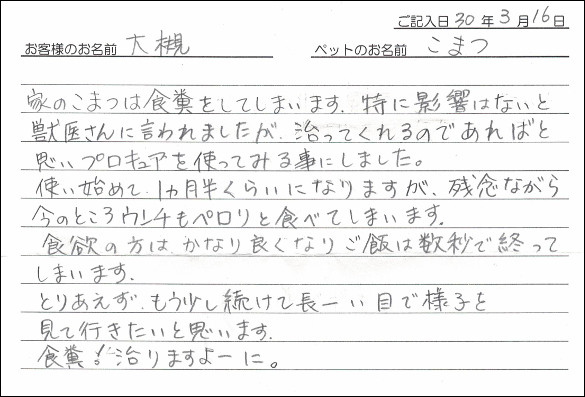 ご記入日 30 年 3 月 16 日
お客様のお名前 大槻 ペットのお名前 こまつ
家のこまつは食糞をしてしまいます. 特に影響はないと
獣医さんに言われましたが. 治ってくれるのであればと
思いプロキュアを使ってみる事にしました。
使い始めて. 1ヵ月半くらいになりますが、残念ながら
今のところウンチもペロリと食べてしまいます.
食欲の方は. かなり良くなりご飯は数秒で終って
しまいます.
とりあえず. もう少し続けて長ーい目で様子を
見て行きたいと思います.
食糞!治りますよーに。